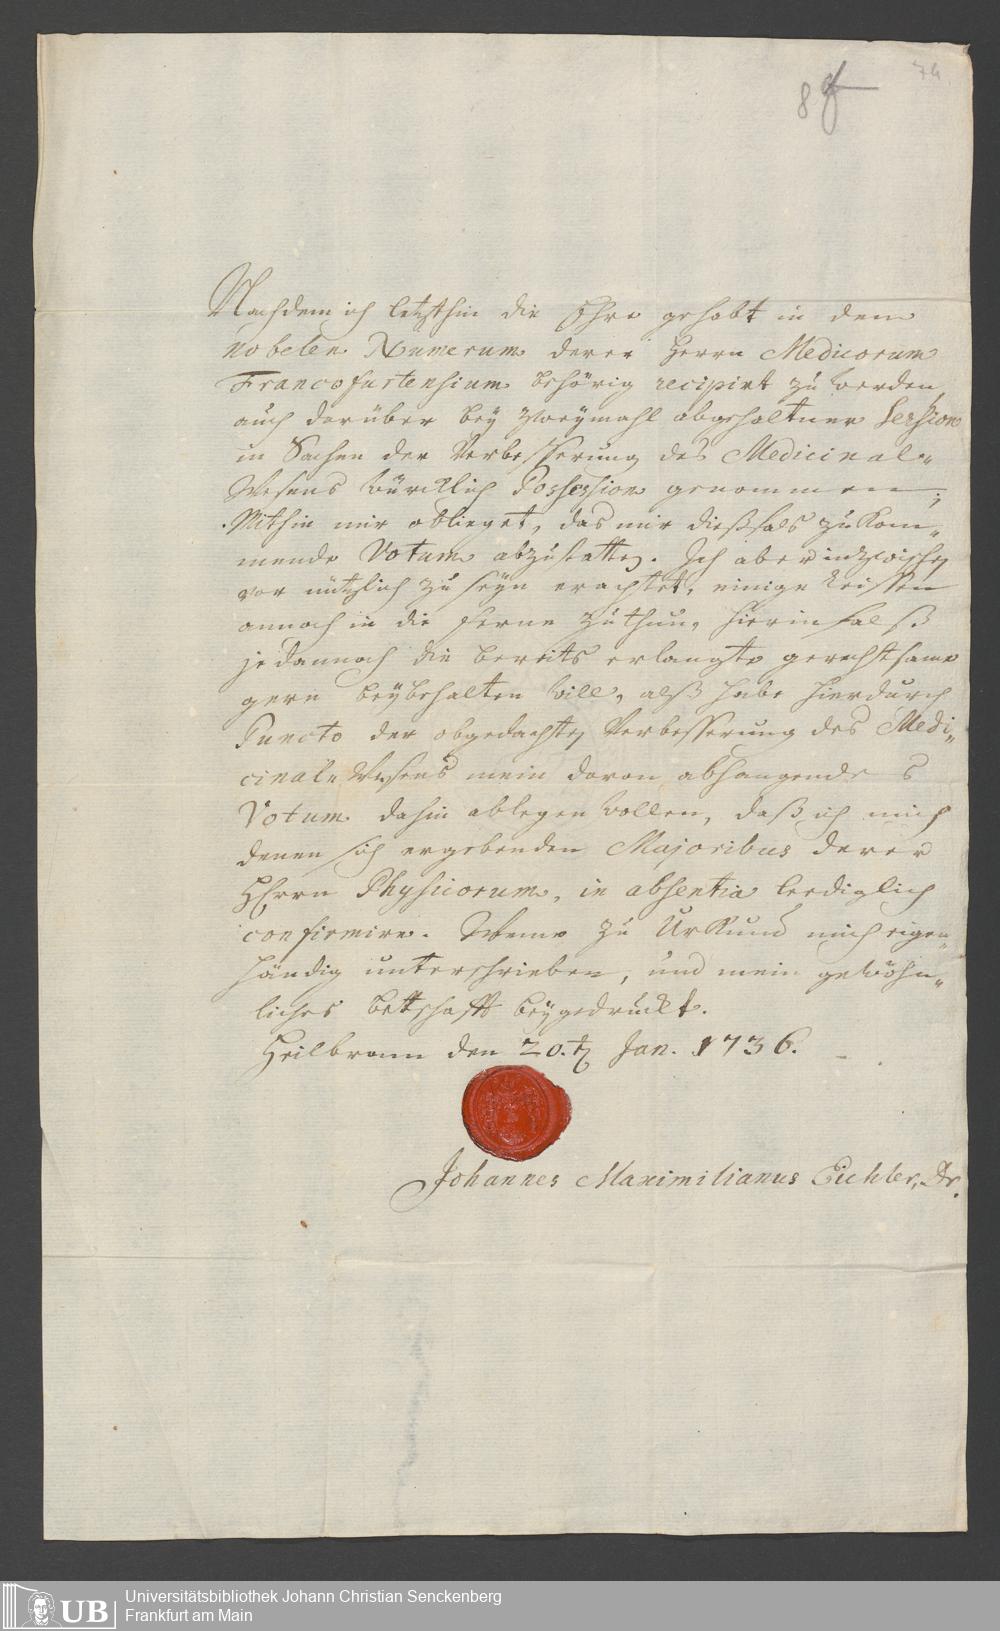 74
8
Nachdem ich letzthin die Ehre gehabt in dem
nobelen Numerum derer Herrn Medicorum
Francofurtensium behörig recipirt zu werden,
auch darüber bey zweymahl abgehaltner Session
in Sachen der Verbesserung des Medicinal„
Wesens würcklich Possession genommen;
Mithin mir oblieget, das mir dießfals zukom„
mende Votum abzustatten. Ich aber inzwischen
vor nützlich zu seyn erachtet, einige Reissen
annoch in die ferne zu thun, hierinfalß
jedannoch die bereits erlangte gerechtsame
gern beybehalten will, alß habe hierdurch
Puncto der obgedachten Verbesserung des Medi„
cinal„ Wesens mein davon abhangendes
Votum dahin ablegen wollen, daß ich mich
denen sich ergebenden Majoribus derer
Herrn Physicorum, in absentia lediglich
confirmire. Wenne zu Urkund mich eigen„
händig unterschrieben, und mein gewöhn„
liches bettschafft beygedruckt.
Heilbronn den 20.t Jan. 1736.
Johannes Maximilianus Eichler, Dr.
UB
Universitätsbibliothek Johann Christian Senckenberg
Frankfurt am Main